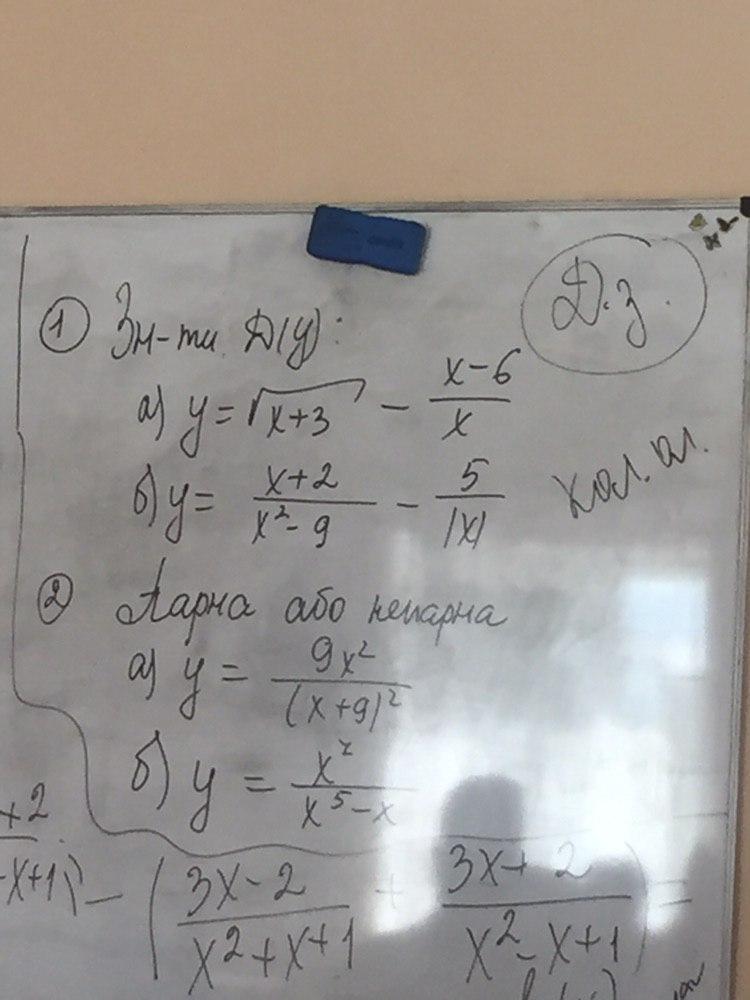 Д.з.
① Зн-ти D(y):
а) y = √(x+3) - (x-6)/x
б) y = (x+2)/(x²-9) - 5/|x|
② Парна або непарна
а) y = 9x²/(x+9)²
б) y = x⁷/(x⁵-x)
+2
-x+1) - ( (3x-2)/(x²+x+1) + (3x+2)/(x²-x+1) ) =